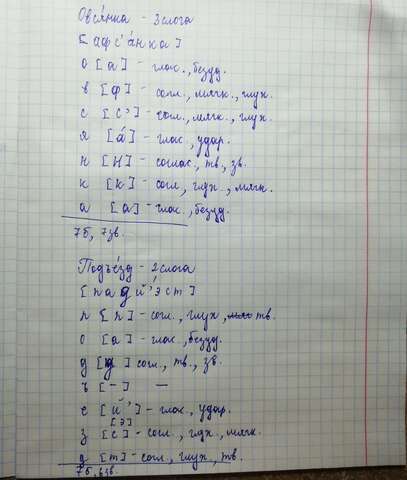 Овся́нка - 3 слога
[афс'а́нка]
о [а] - глас., безуд.
в [ф] - согл., мягк., глух.
с [с'] - согл., мягк., глух.
я [а́] - глас., удар.
н [н] - соглас., тв., зв.
к [к] - согл., глух., мягк.
а [а] - глас., безуд.
7б, 7зв.
Подъе́зд - 2 слога
[падй'эст]
п [п] - согл., глух., тв.
о [а] - глас., безуд.
д [д] согл., тв., зв.
ъ [-] —
е [й'] - глас., удар.
[э]
з [с] - согл., глух., мягк.
д [т] - согл., глух., тв.
7б, 6зв.